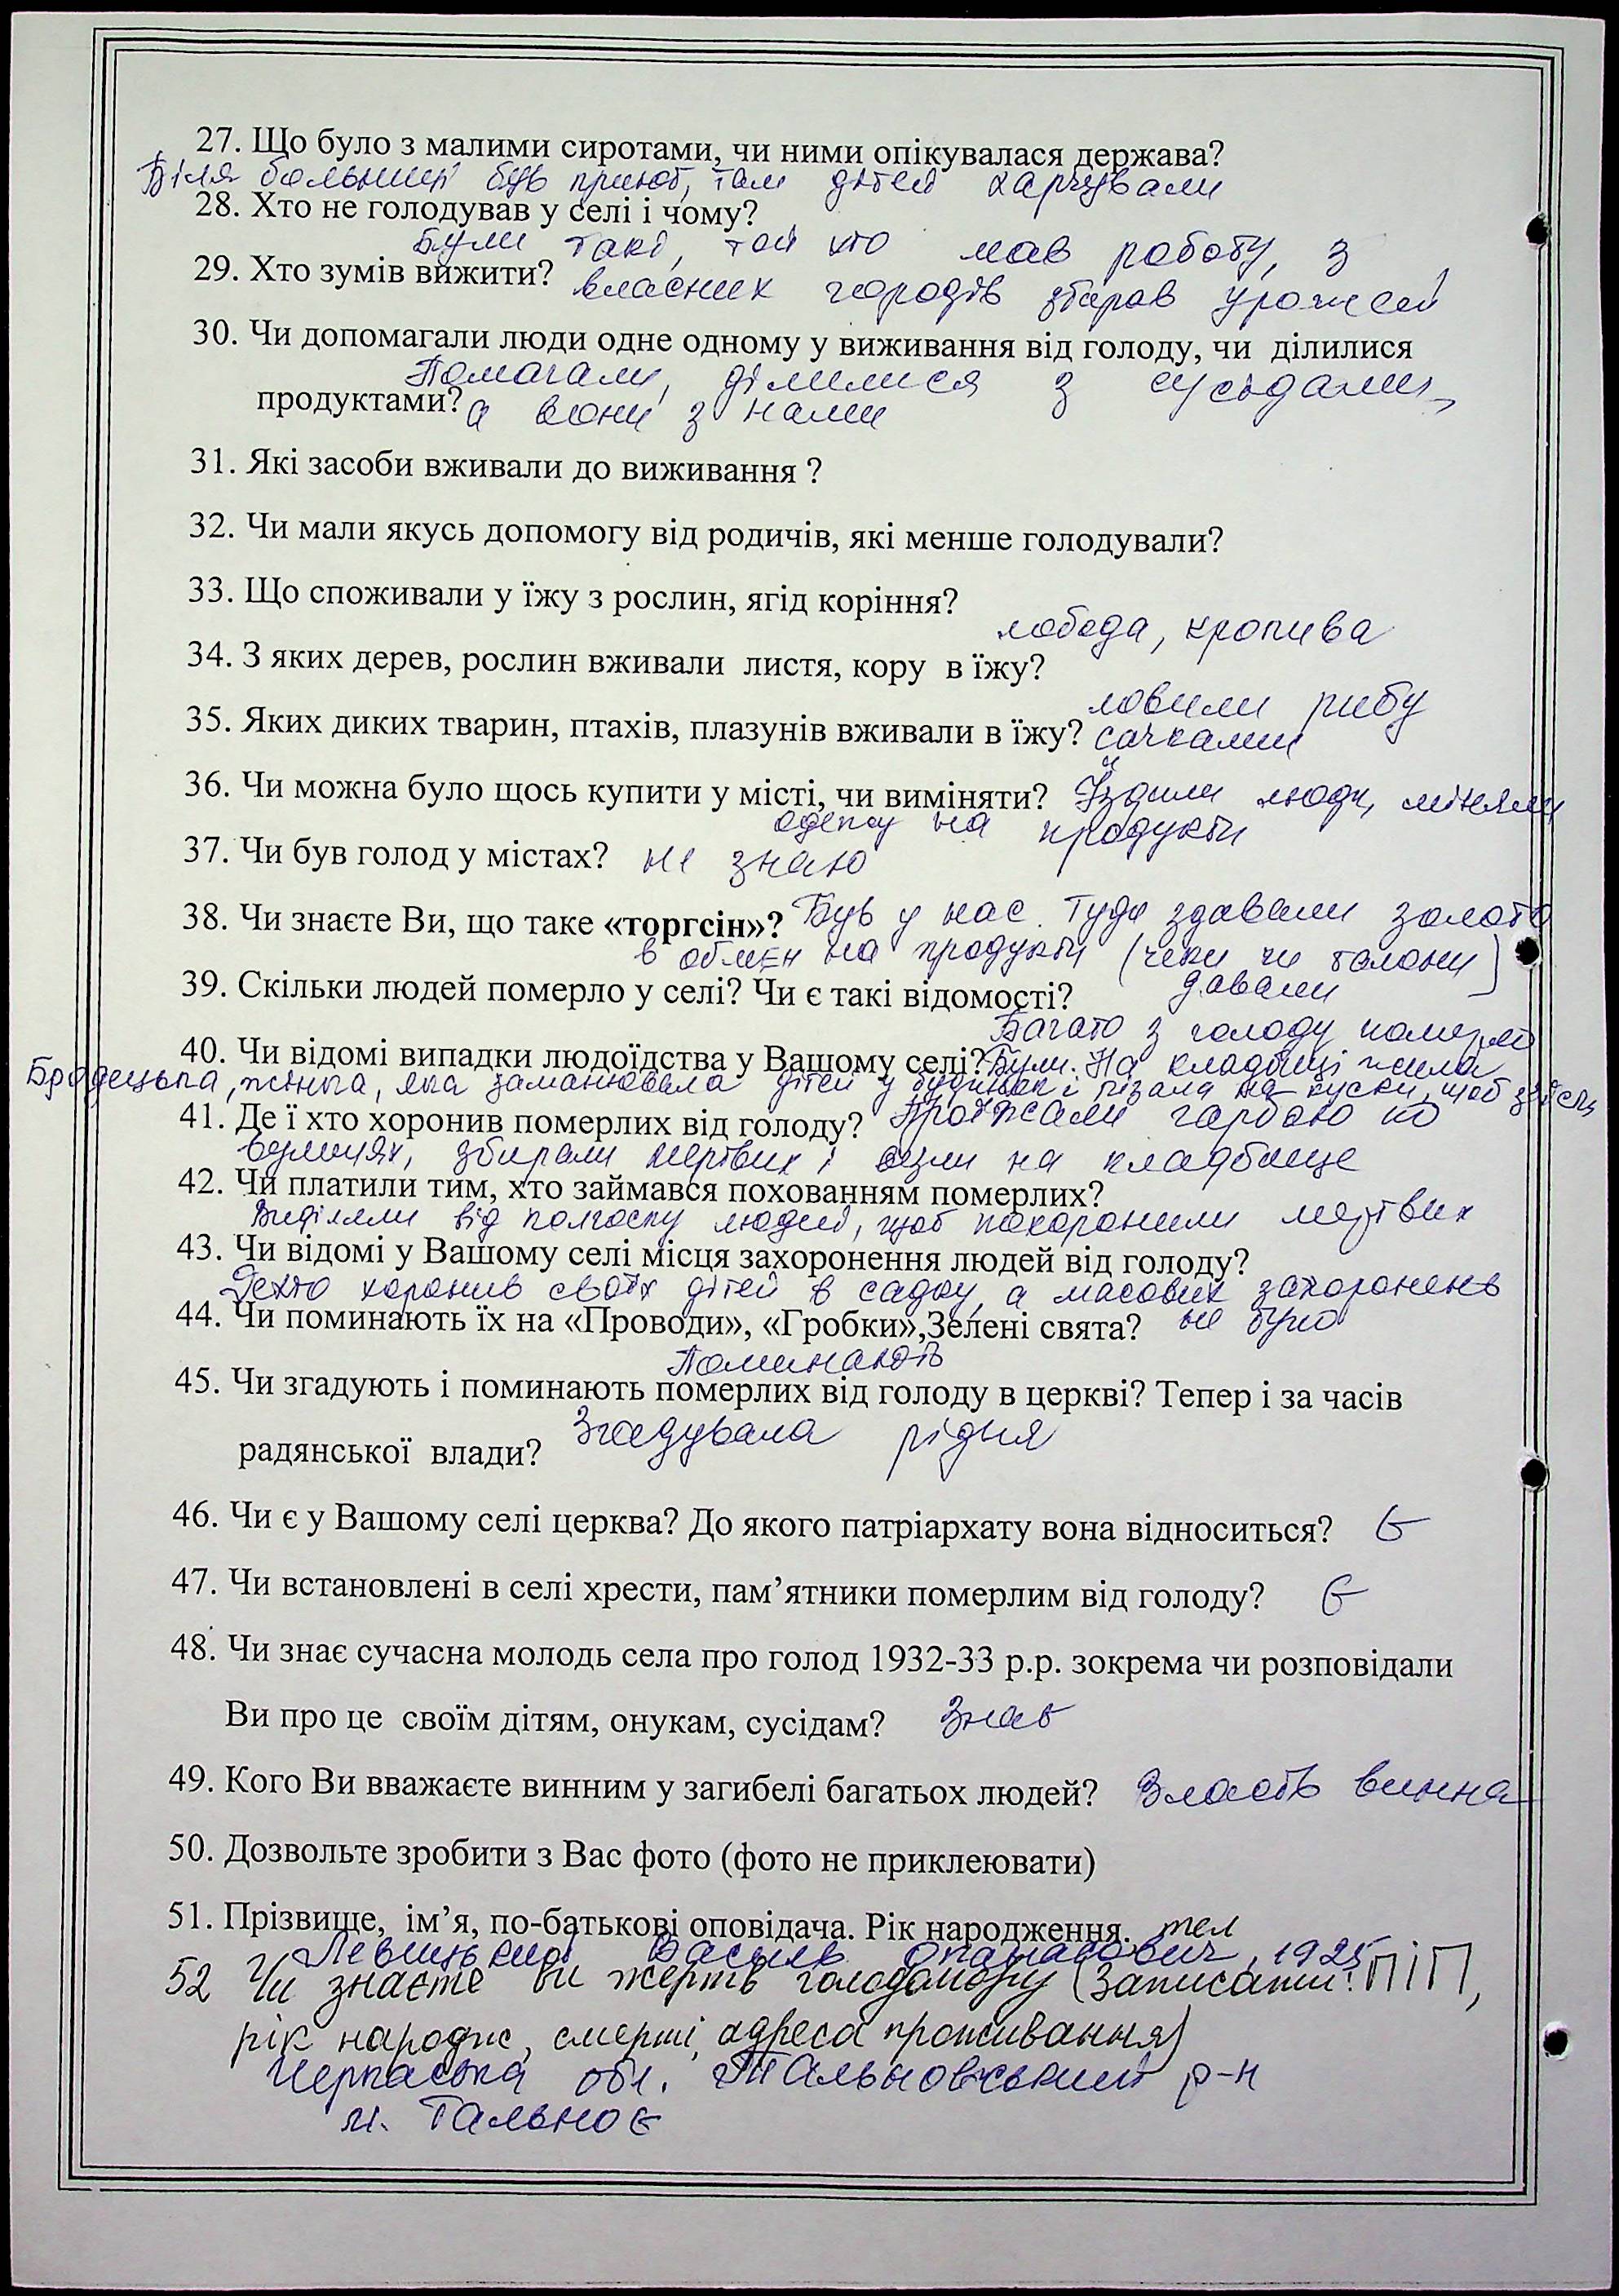 27. Що було з малими сиротами, чи ними опікувалася держава?
Біля больниці був приют, там дітей харчували
28. Хто не голодував у селі і чому?
Були такі, той хто мав роботу, з
29. Хто зумів вижити? власних городів збирав урожай
30. Чи допомагали люди одне одному у виживання від голоду, чи ділилися
Помагали, ділилися з сусідами,
продуктами? а вони з нами
31. Які засоби вживали до виживання ?
32. Чи мали якусь допомогу від родичів, які менше голодували?
33. Що споживали у їжу з рослин, ягід коріння?
лобода, кропива
34. З яких дерев, рослин вживали листя, кору в їжу?
ловили рибу
35. Яких диких тварин, птахів, плазунів вживали в їжу? сачками
36. Чи можна було щось купити у місті, чи виміняти? Їздили люди, міняли
одежу на продукти
37. Чи був голод у містах? не знаю
38. Чи знаєте Ви, що таке «торгсін»? Був у нас. Туда здавали золото
в обмєн на продукти (чеки чи талони)
39. Скільки людей померло у селі? Чи є такі відомості? давали
Багато з голоду померло
40. Чи відомі випадки людоїдства у Вашому селі? Були. На кладбищі жила
Бродецька, жінка, яка заманювала дітей у будинок і різала на куски, щоб
41. Де ї хто хоронив померлих від голоду? Проїжали гарбою по
вулицях, збирали мертвих і везли на кладбище
42. Чи платили тим, хто займався похованням померлих?
Виділяли від колгоспу людей, щоб похоронили мертвих
43. Чи відомі у Вашому селі місця захоронення людей від голоду?
Дехто хоронив своїх дітей в садку, а масових захоронень
44. Чи поминають їх на «Проводи», «Гробки»,Зелені свята? не було
Поминають
45. Чи згадують і поминають померлих від голоду в церкві? Тепер і за часів
радянської влади? Згадувала рідня
46. Чи є у Вашому селі церква? До якого патріархату вона відноситься? Є
47. Чи встановлені в селі хрести, пам’ятники померлим від голоду? Є
48. Чи знає сучасна молодь села про голод 1932-33 р.р. зокрема чи розповідали
Ви про це своїм дітям, онукам, сусідам? Знає
49. Кого Ви вважаєте винним у загибелі багатьох людей? Власть винна
50. Дозвольте зробити з Вас фото (фото не приклеювати)
51. Прізвище, ім’я, по-батькові оповідача. Рік народження. тел
Левицький Василь Опанасович, 1925
52 Чи знаєте ви жертв голодомору (Записати: ПІП,
рік народж, смерті, адреса проживання)
Черкаська обл. Тальновський р-н
м. Тальноє